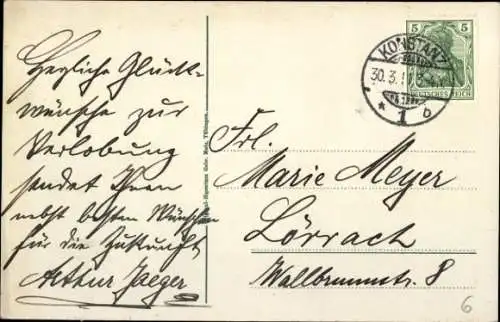 Herzliche Glück-
wünsche zur
Verlobung
sendet Ihnen
nebst besten Wünschen
für die Zukunft
Arthur Jaeger
Gebr. Metz, Tübingen.
5 5
DEUTSCHES REICH
KONSTANZ
30.3.1
* 1 b
Frl.
Marie Meyer
Lörrach
Wallbrunnstr. 8
6